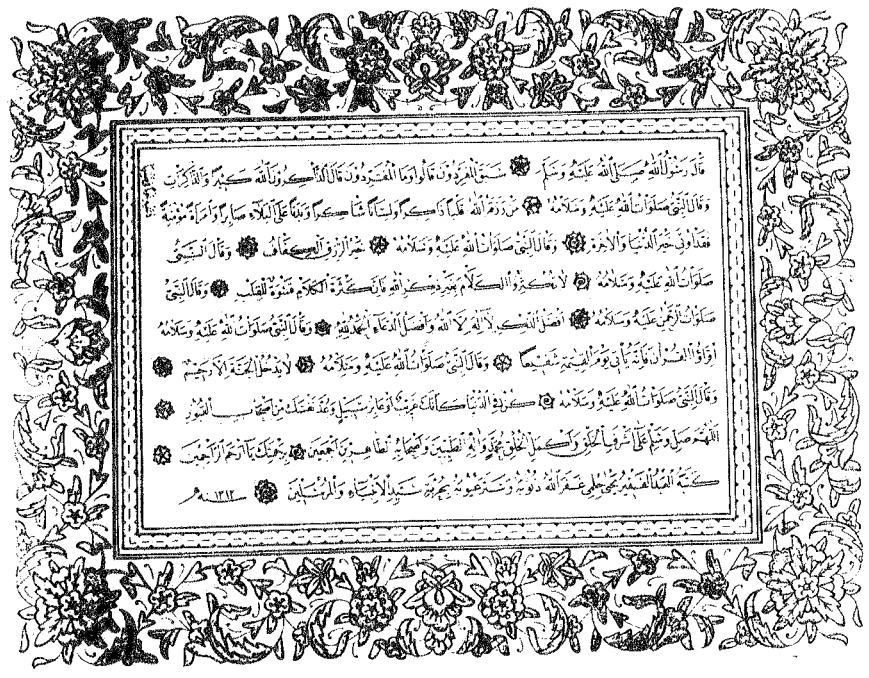 قَالَ رَسُولُ اللهِ صَلَّى اللهُ عَلَيْهِ وَسَلَّمَ سَبَقَ الْمُفَرِّدُونَ قَالُوا وَمَا الْمُفَرِّدُونَ قَالَ الذَّاكِرُونَ اللهَ كَثِيرًا وَالذَّاكِرَاتُ
وَقَالَ النَّبِيُّ صَلَوَاتُ اللهِ عَلَيْهِ وَسَلَامُهُ مَنْ رَزَقَهُ اللهُ قَلْبًا ذَاكِرًا وَلِسَانًا شَاكِرًا وَبَدَنًا عَلَى الْبَلَاءِ صَابِرًا وَامْرَأَةً مُؤْمِنَةً
فَقَدْ أُوتِيَ خَيْرَ الدُّنْيَا وَالْآخِرَةِ وَقَالَ النَّبِيُّ صَلَوَاتُ اللهِ عَلَيْهِ وَسَلَامُهُ خَيْرُ الرِّزْقِ الْكَفَافُ وَقَالَ النَّبِيُّ
صَلَوَاتُ اللهِ عَلَيْهِ وَسَلَامُهُ لَا تُكْثِرُوا الْكَلَامَ بِغَيْرِ ذِكْرِ اللهِ فَإِنَّ كَثْرَةَ الْكَلَامِ قَسْوَةٌ لِلْقَلْبِ وَقَالَ النَّبِيُّ
صَلَوَاتُ الرَّحْمٰنِ عَلَيْهِ وَسَلَامُهُ أَفْضَلُ الذِّكْرِ لَا إِلٰهَ إِلَّا اللهُ وَأَفْضَلُ الدُّعَاءِ الْحَمْدُ لِلّٰهِ وَقَالَ النَّبِيُّ صَلَوَاتُ اللهِ عَلَيْهِ وَسَلَامُهُ
اقْرَؤُا الْقُرْآنَ فَإِنَّهُ يَأْتِي يَوْمَ الْقِيٰمَةِ شَفِيعًا وَقَالَ النَّبِيُّ صَلَوَاتُ اللهِ عَلَيْهِ وَسَلَامُهُ لَا يَدْخُلُ الْجَنَّةَ إِلَّا رَحِيمٌ
وَقَالَ النَّبِيُّ صَلَوَاتُ اللهِ عَلَيْهِ وَسَلَامُهُ كُنْ فِي الدُّنْيَا كَأَنَّكَ غَرِيبٌ أَوْ عَابِرُ سَبِيلٍ وَعُدَّ نَفْسَكَ مِنْ أَصْحَابِ الْقُبُورِ
اللّٰهُمَّ صَلِّ وَسَلِّمْ عَلَى أَشْرَفِ الْخَلْقِ وَأَكْمَلِ الْخَلْقِ مُحَمَّدٍ وَآلِهِ الطَّيِّبِينَ وَأَصْحَابِهِ الطَّاهِرِينَ أَجْمَعِينَ بِرَحْمَتِكَ يَا أَرْحَمَ الرَّاحِمِينَ
كَتَبَهُ الْعَبْدُ الْفَقِيرُ يَحْيَى حِلْمِي غَفَرَ اللهُ ذُنُوبَهُ وَسَتَرَ عُيُوبَهُ بِحُرْمَةِ سَيِّدِ الْأَنْبِيَاءِ وَالْمُرْسَلِينَ سنة ١٣١٢